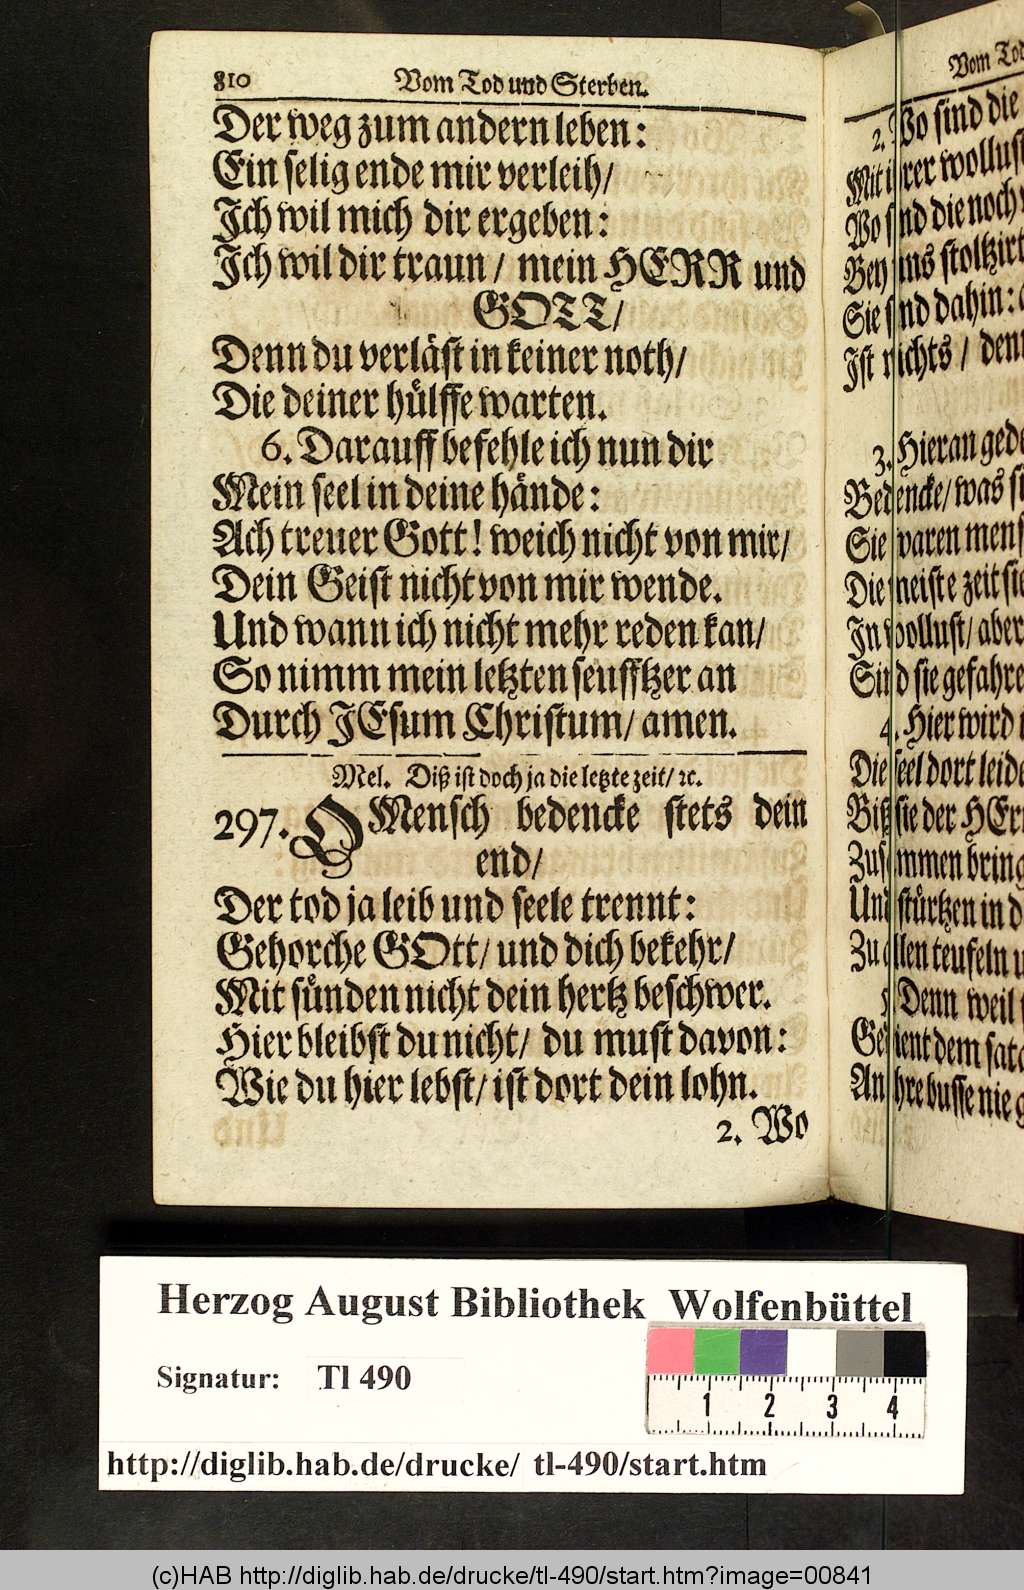 810 Vom Tod und Sterben.
Der weg zum andern leben:
Ein selig ende mir verleih/
Ich wil mich dir ergeben:
Ich wil dir traun / mein HERR und
GOTT/
Denn du verläst in keiner noth/
Die deiner hülffe warten.
6. Darauff befehle ich nun dir
Mein seel in deine hände:
Ach treuer Gott! weich nicht von mir/
Dein Geist nicht von mir wende.
Und wann ich nicht mehr reden kan/
So nimm mein letzten seufftzer an
Durch JEsum Christum/ amen.
Mel. Diß ist doch ja die letzte zeit/ ꝛc.
297. O Mensch bedencke stets dein
end/
Der tod ja leib und seele trennt:
Gehorche GOtt/ und dich bekehr/
Mit sünden nicht dein hertz beschwer.
Hier bleibst du nicht/ du must davon:
Wie du hier lebst/ ist dort dein lohn.
2. Wo
Vom Tod
2. Wo sind die
Mit ihrer wollust
Wo sind die noch
Bey uns stoltzirt
Sie sind dahin:
Ist nichts / denn
3. Hieran gede
Bedencke/ was si
Sie waren mens
Die meiste zeit sie
In wollust/ aber
Sind sie gefahre
4. Hier wird
Die seel dort leide
Biß sie der HErr
Zusammen bring
Und stürtzen in d
Zu allen teufeln u
5. Denn weil
Gedient dem sata
An ihre busse nie g
Herzog August Bibliothek Wolfenbüttel
Signatur: Tl 490
1 2 3 4
http://diglib.hab.de/drucke/ tl-490/start.htm
(c)HAB http://diglib.hab.de/drucke/tl-490/start.htm?image=00841